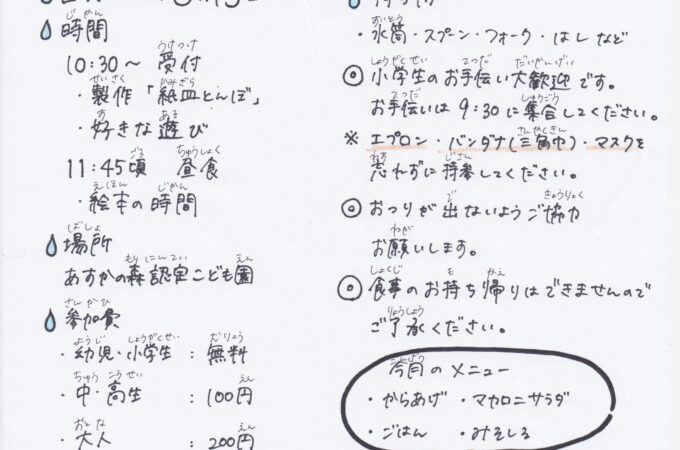 時間
10:30〜 受付
・製作「紙皿とんぼ」
・好きな遊び
11:45頃 昼食
・絵本の時間
場所
あすかの森認定こども園
参加費
・幼児・小学生 : 無料
・中・高生 : 100円
・大人 : 200円
・水筒・スプーン・フォーク・はしなど
◎小学生のお手伝い大歓迎です。
お手伝いは9:30に集合してください。
※エプロン・バンダナ(三角巾)・マスクを
忘れずに持参してください。
◎おつりが出ないようご協力
お願いします。
◎食事のお持ち帰りはできませんので
ご了承ください。
今月のメニュー
・からあげ ・マカロニサラダ
・ごはん ・みそしる